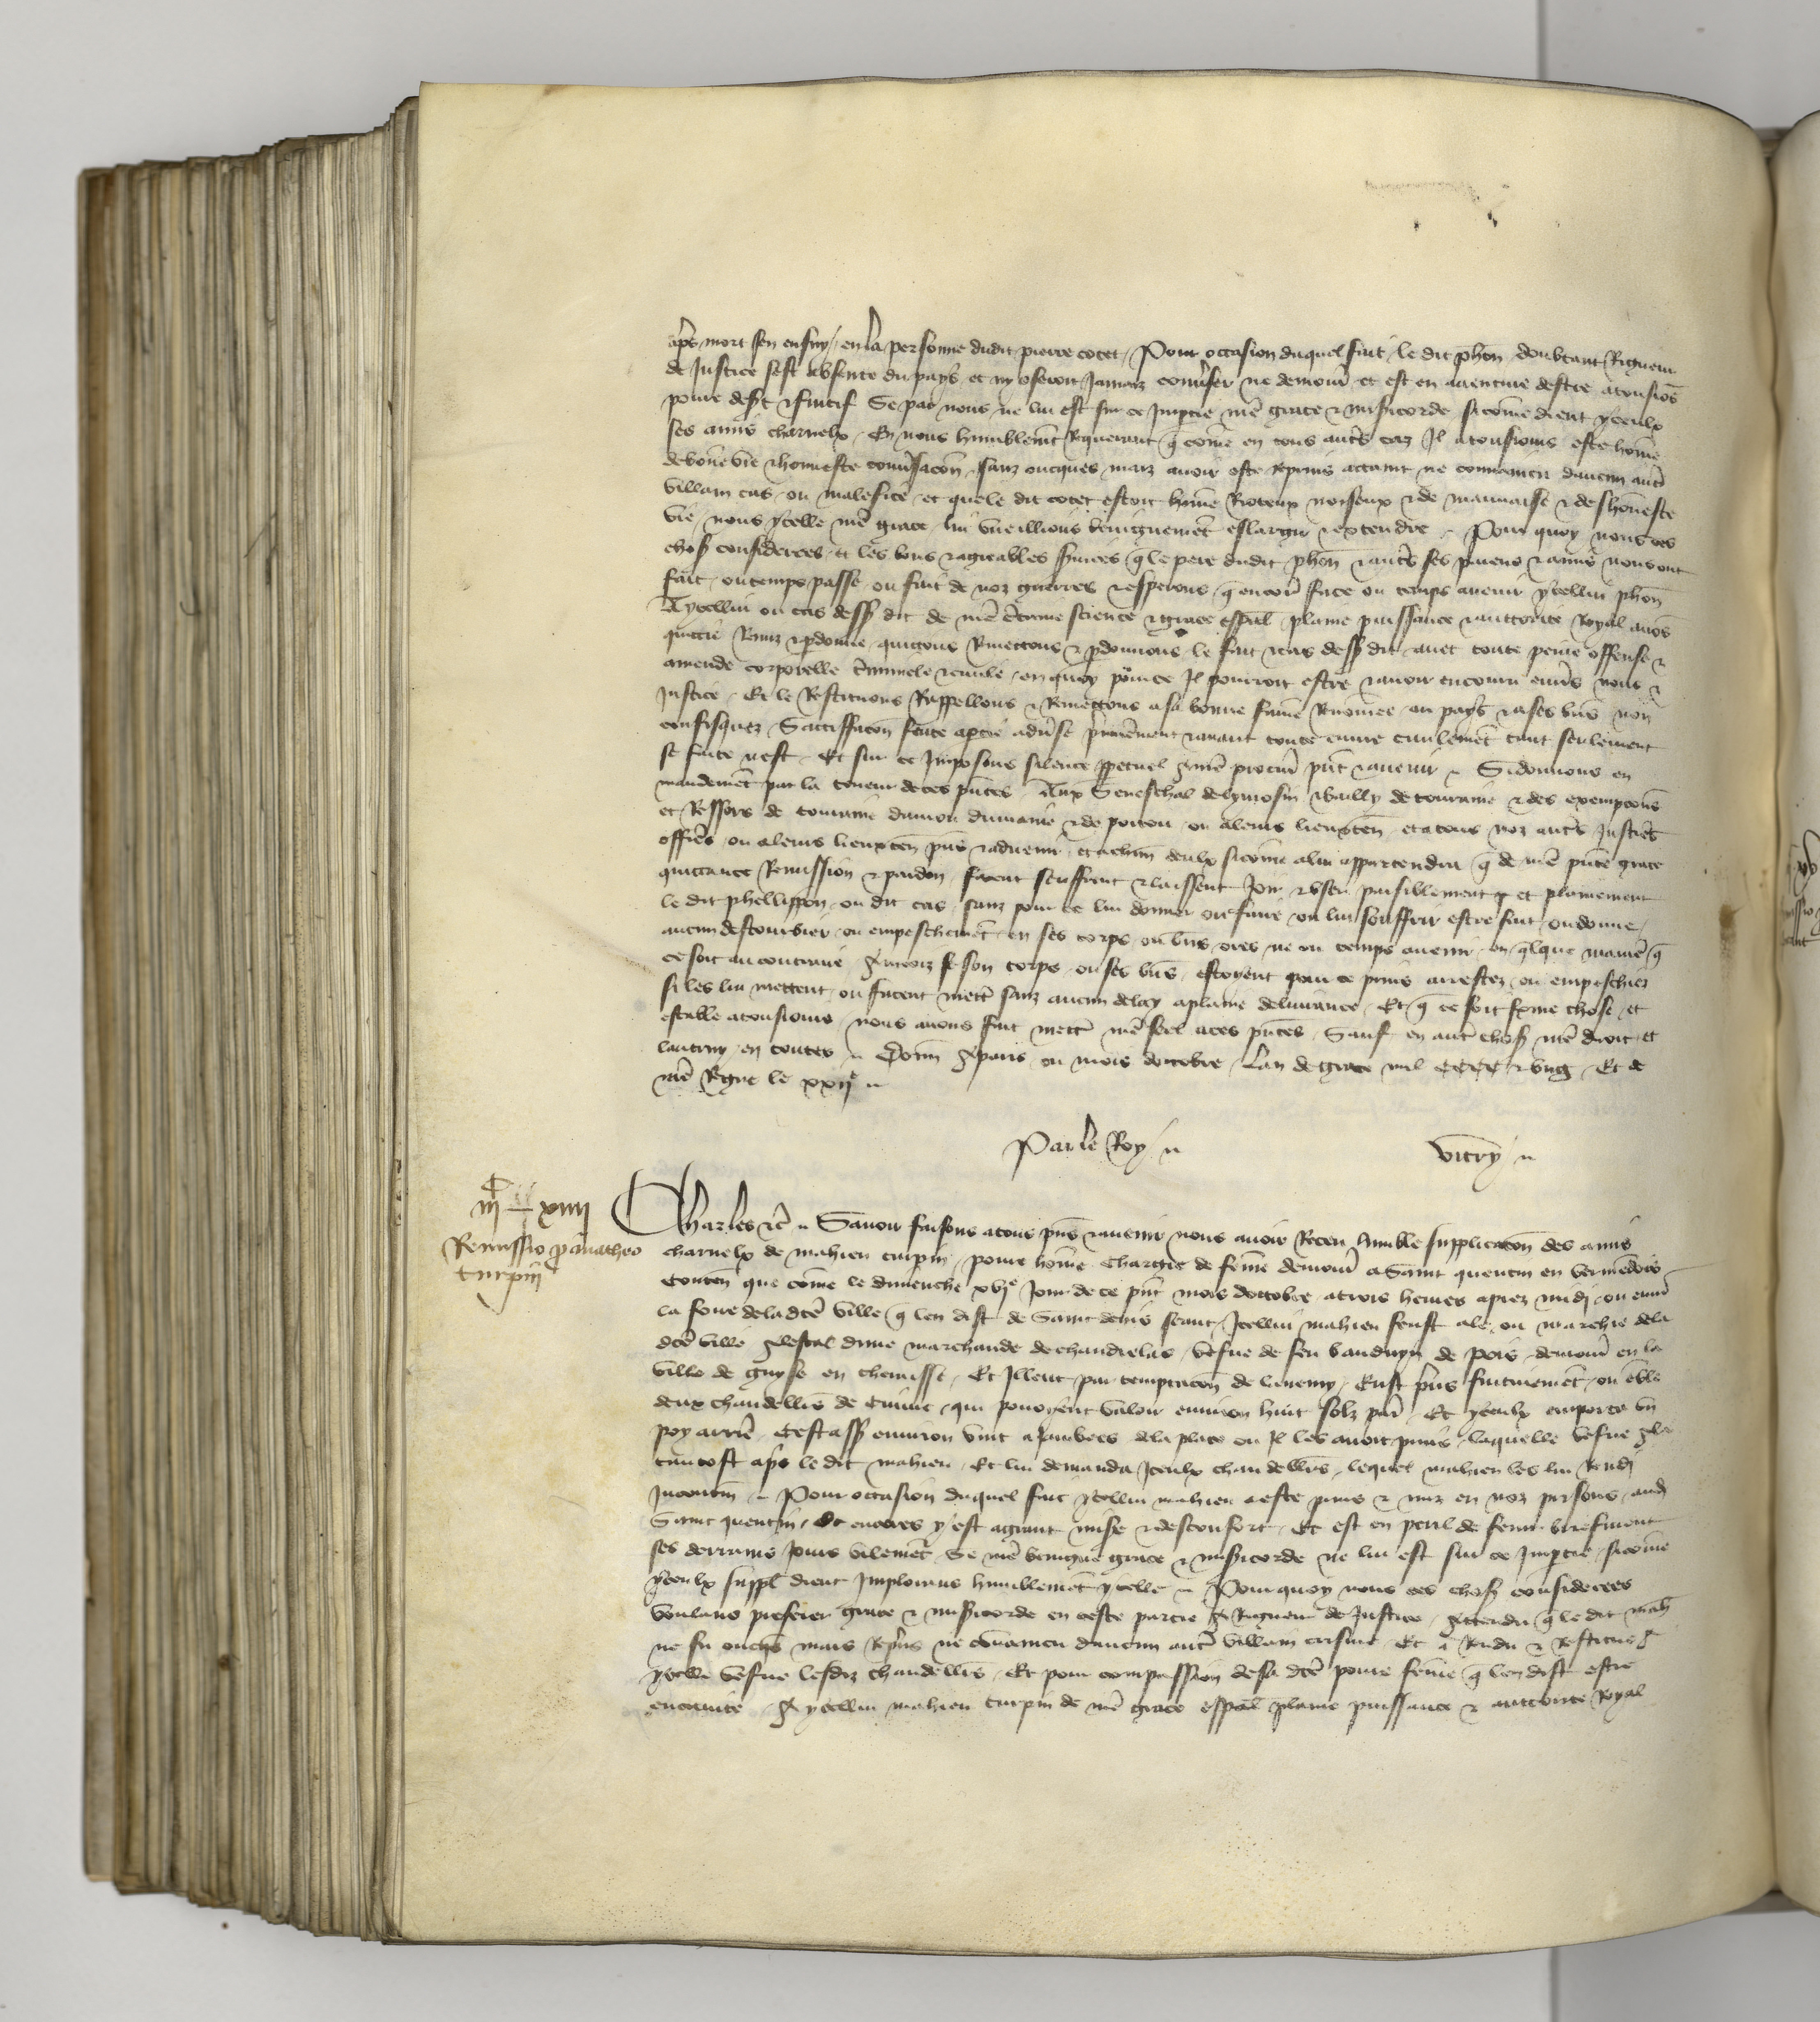 apres mort sen ensuy en la personne dudit pierre cotet / Pour occasion duquel fait le dit phon doubtant Rigueur
de Justice sest absente du pays et ny oseroit Jamaiz conuser ne demour et est en auenture destre atousios
poure desert & fuitif Se par nous ne lui est sur ce Impartie nre grace & misericorde sicome dient yceulx
ses amis charnelx / En nous humblemt Requerant q come en tous autrs cas Il a tousiours este home
de bone vie & honneste conusacon sanz oncques mais auoir este Repris attaint ne conuaincu daucun autr
villain cas ou malefice et que le dit cotet estoit home Rioteux noiseux & de mauuaise & deshoneste
vie / nous ycelle nre grace lui vueillions benignemet eslargir & extendre / Pour quoy nous ces
choses considerees et les bons & agreables seruices q le pere dudit phon & autrs ses parens & amis nous ont
fait ou temps passe ou fait de noz guerres & esperons q encor face ou temps auenir ycellui phon
A ycellui ou cas dessus dit de nre certaine science & grace espal plaine puissance & auctorite Royal auos
quictie Remiz & pardonne quictons Remettons & pardonnons le fait & cas dessus dit auec toute peine offense &
amende corporelle criminele & ciuile en quoy pour ce Il pourroit estre & auoir encouru enuers nous &
Justice / Et le Restituons Rappellons & Remettons a sa bonne fame Renomee au pays & a ses biens non
confisquez Satisffacon faite a partie aduse premierement & auant toute euure ciuilement tant seulement
se faite nest / Et sur ce Imposons silence perpetuel A nre procur present & auenir / Si donnons en
mandement par la teneur de ces presentes / Aux Seneschal de lymosin Bailly de touraine & des exempcons
et Ressors de touraine danjou du maine & de poitou ou a leurs lieuxten et a tous noz autrs Justiciers
officiers ou a leurs lieuxten presens & aduenir et a chun deulx sicome a lui appartendra q de nre presente grace
quictance Remission & pardon facent seuffrent & laissent Joir & vser paisiblement et plainement
le dit phelippon ou dit cas sanz pour ce lui donner ou faire ou lui souffrir estre fait ou donne /
aucun destourbier ou empeschement en ses corps ou biens ores ne ou temps auenir en qlque maniere q
ce soit au contraire / Aincoiz se son corps ou ses biens estoyent pour ce prins arrestez ou empeschiez
si les lui mettent ou facent mettre sanz aucun delay a plaine deliurance / Et q ce soit ferme chose et
estable a tousiours nous auons fait mettre nre seel a ces presentes / Sauf en autre chose nre droit et
lautruy en toutes / Donn A paris ou mois doctobre Lan de grace mil CCCC & vng / Et de
nre Regne le xxije
Par le Roy Vitry
iij xiiij
Remissio pro matheo
turpin
Charles etc Sauoir faisons a tous presens & auenir nous auoir Receu humble supplicacon des amis
charnelx de mahieu turpin poure home chargie de feme demour a Saint quentin en vermendois
Conten que come le dimenche xvje Jour de ce present mois doctobre a trois heures apres midi ou enuir
la foire de la dce ville q len dist de Saint denis seant / Icellui mahieu feust ale ou marchie de la
dce ville A lestal dune marchande de chandelas vefue de feu bauduyn de Pois demour en la
ville de guyse en therasse / Et Illeut par temptacon de lanemy Eust pris furtiuement ou emble
deux chandelliers de cuiure qui pouoyent valoir enuiron huit solz par / Et yceulx emporta vn
poy arrier Cestassauoir enuiron vint a jambees de la place ou Il les auoit prins / laquelle vefue ala
tantost apres le dit mahieu / Et lui demanda Iceulx chandelliers lequel mahieu les lui Rendi
Incontin / Pour occasion duquel fait ycellui mahieu a este prins & miz en noz prisons audit
Saint quentin Et encores y est a grant misere & desconfort / Et est en peril de fenir briefment
ses derrains Jours vilement Se nre benigne grace & misericorde ne lui est sur ce Impartie / sicome
yceulx suppl dient Implorans humblement ycelle / Pour quoy nous ces choses considerees
voulans preferer grace & misericorde en ceste partie A Rigueur de Justice / Attendu q le dit mah
ne fu oncqs mais Repris ne conuaincu daucun autre villain crisme / Et a Rendu & Restitue a
ycelle vefue lesdiz chandelliers / Et pour compassion de sa dce poure feme q len dist estre
encainte / A ycellui mahieu turpin de nre grace espal plaine puissance & auctorite Royal